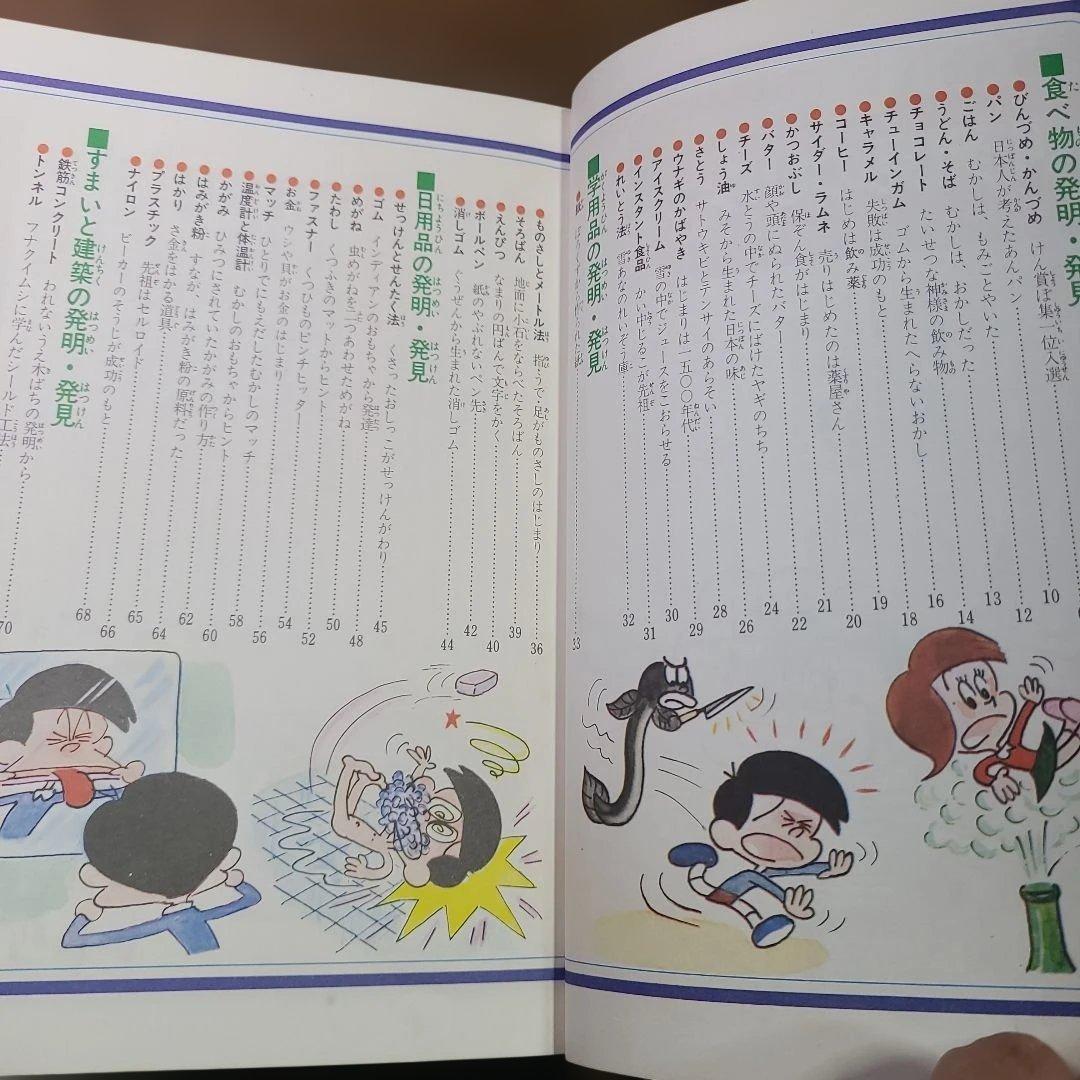 ■食べ物の発明・発見
●びんづめ・かんづめ けん賞ぼ集一位入選 10
●パン 日本人が考えたあんパン 12
●ごはん むかしは、もみごとやいた 13
●うどん・そば むかしは、おかしだった 14
●チョコレート たいせつな神様の飲み物 16
●チューインガム ゴムから生まれたへらないおかし 18
●キャラメル 失敗は成功のもと 19
●コーヒー はじめは飲み薬 20
●サイダー・ラムネ 売りはじめたのは薬屋さん 21
●かつおぶし 保ぞん食がはじまり 22
●バター 顔や頭にぬられたバター 24
●チーズ 水とうの中でチーズにばけたヤギのちち 26
●しょう油 みそから生まれた日本の味 28
●さとう サトウキビとテンサイのあらそい 29
●ウナギのかばやき はじまりは一五〇〇年代 30
●アイスクリーム 雪の中でジュースをこおらせる 31
●インスタント食品 かい中しるこが先祖 32
●れいとう法 雪あなのれいぞう庫 33
■学用品の発明・発見
●ものさしとメートル法 指じゃうで足がものさしのはじまり 36
●そろばん 地面に小石をならべたそろばん 39
●えんぴつ なまりの円ばんで文字をかく 40
●ボールペン 紙のやぶれないペン先 42
●消しゴム ぐうぜんから生まれた消しゴム 44
■日用品の発明・発見
●せっけんとせんたく法 くさったおしっこがせっけんがわり 45
●ゴム インデアンのおもちゃから発達 48
●めがね 虫めがねを二つあわせためがね 50
●たわし くつふきのマットからヒント 52
●ファスナー くつひものピンチヒッター 54
●お金 ウシや貝がお金のはじまり 56
●マッチ ひとりでにもえだしたむかしのマッチ 58
●温度計と体温計 むかしのおもちゃからヒント 60
●かがみ ひみつにされていたかがみの作り方 62
●はみがき粉 すなが、はみがき粉の原料だった 64
●はかり さ金をはかる道具 65
●プラスチック 先祖はセルロイド 66
●ナイロン ビーカーのそうじが成功のもと 68
■すまいと建築の発明・発見
●鉄筋コンクリート われないうえ木ばちの発明から 70
●トンネル フナクイムシに学んだシールド工法